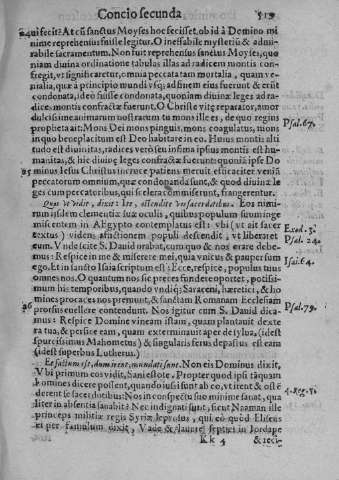 Concio secunda 519
24 qui fecit? At cũ sanctus Moyses hoc fecisset, ob id à Domino mi
nime reprehensus fuisse legitur. O ineffabile mysteriũ & admi-
rabile sacramentum. Non fuit reprehensus sanctus Moyses, quo
niam diuina ordinatione tabulas illas ad radicem montis con-
fregit, vt significaretur, omnia peccata tam mortalia, quàm ve-
nialia, quæ a principio mundi vsq; ad finem eius fuerunt & erũt
condonata, ideo fuisse condonata, quoniam diuinæ leges ad ra-
dicẽ montis confractæ fuerunt. O Christe vitę reparator, amor
dulcissime animarum nostrarum tu mons ille es, de quo regius
propheta ait: Mons Dei mons pinguis, mons coagulatus, mons
in quo beneplacitum est Deo habitare in eo. Huius montis alti
tudo est diuinitas, radices verò seu infima ipsius montis est hu-
manitas, & hic diuinę leges confractæ fuerunt: quoniã ipse Do
25 minus Iesus Christus in cruce patiens meruit efficaciter veniã
peccatorum omnium, quæ condonanda sunt, & quod diuinæ le
ges cum peccatoribus, qui scelera commiserunt, frangerentur.
Quas vt vidit, dixit: Ite, ostendite vos sacerdotibus. Eos nimi-
rum ijsdem clementiæ suæ oculis, quibus populum suum inge
miscentem in Aegypto contemplatus est: vbi (vt ait sacer
textus) videns afflictionem populi descendit, vt liberaret
eum. Vnde scite S. Dauid orabat, cum quo & nos orare debe-
mus: Respice in me & miserere mei, quia vnicus & pauper sum
ego. Et in sancto Isaia scriptum est: Ecce, respice, populus tuus
omnes nos. O quantum nos sic precari fundere oportet, potissi-
mum his temporibus, quando vndiq; Saraceni, hæretici, & ho
mines procaces nos premunt, & sanctam Romanam Ecclesiam
26 prorsus euellere contendunt. Nos igitur cum S. Dauid dica-
mus: Respice Domine vineam istam, quam plantauit dexte
ra tua, & perfice eam, quam exterminauit aper de sylua, (idest
spurcissimus Mahometus) & singularis ferus depastus est eam
(idest superbus Lutherus.)
Et factum est, dum irent, mundati sunt. Non eis Dominus dixit,
Vbi primum cos vidit, Sani estote. Propter quod ipsi tanquam
homines dicere possent, quando iussi sunt ab eo, vt irent & ostẽ
derent se sacerdotibus: Nos in conspectu suo minime sanat, qua
liter in absentia sanabit? Nec indignati sunt, sicut Naaman ille
princeps militiæ regis Syriæ leprosus, qui eò quòd Eliseus
ei per famulum dixit, Vade & lauare septies in Iordane
Kk 4 & reci-
Psal. 67.
Exod. 3.
Psal. 24.
Isai. 64.
Psal. 79.
4. Reg. 5.